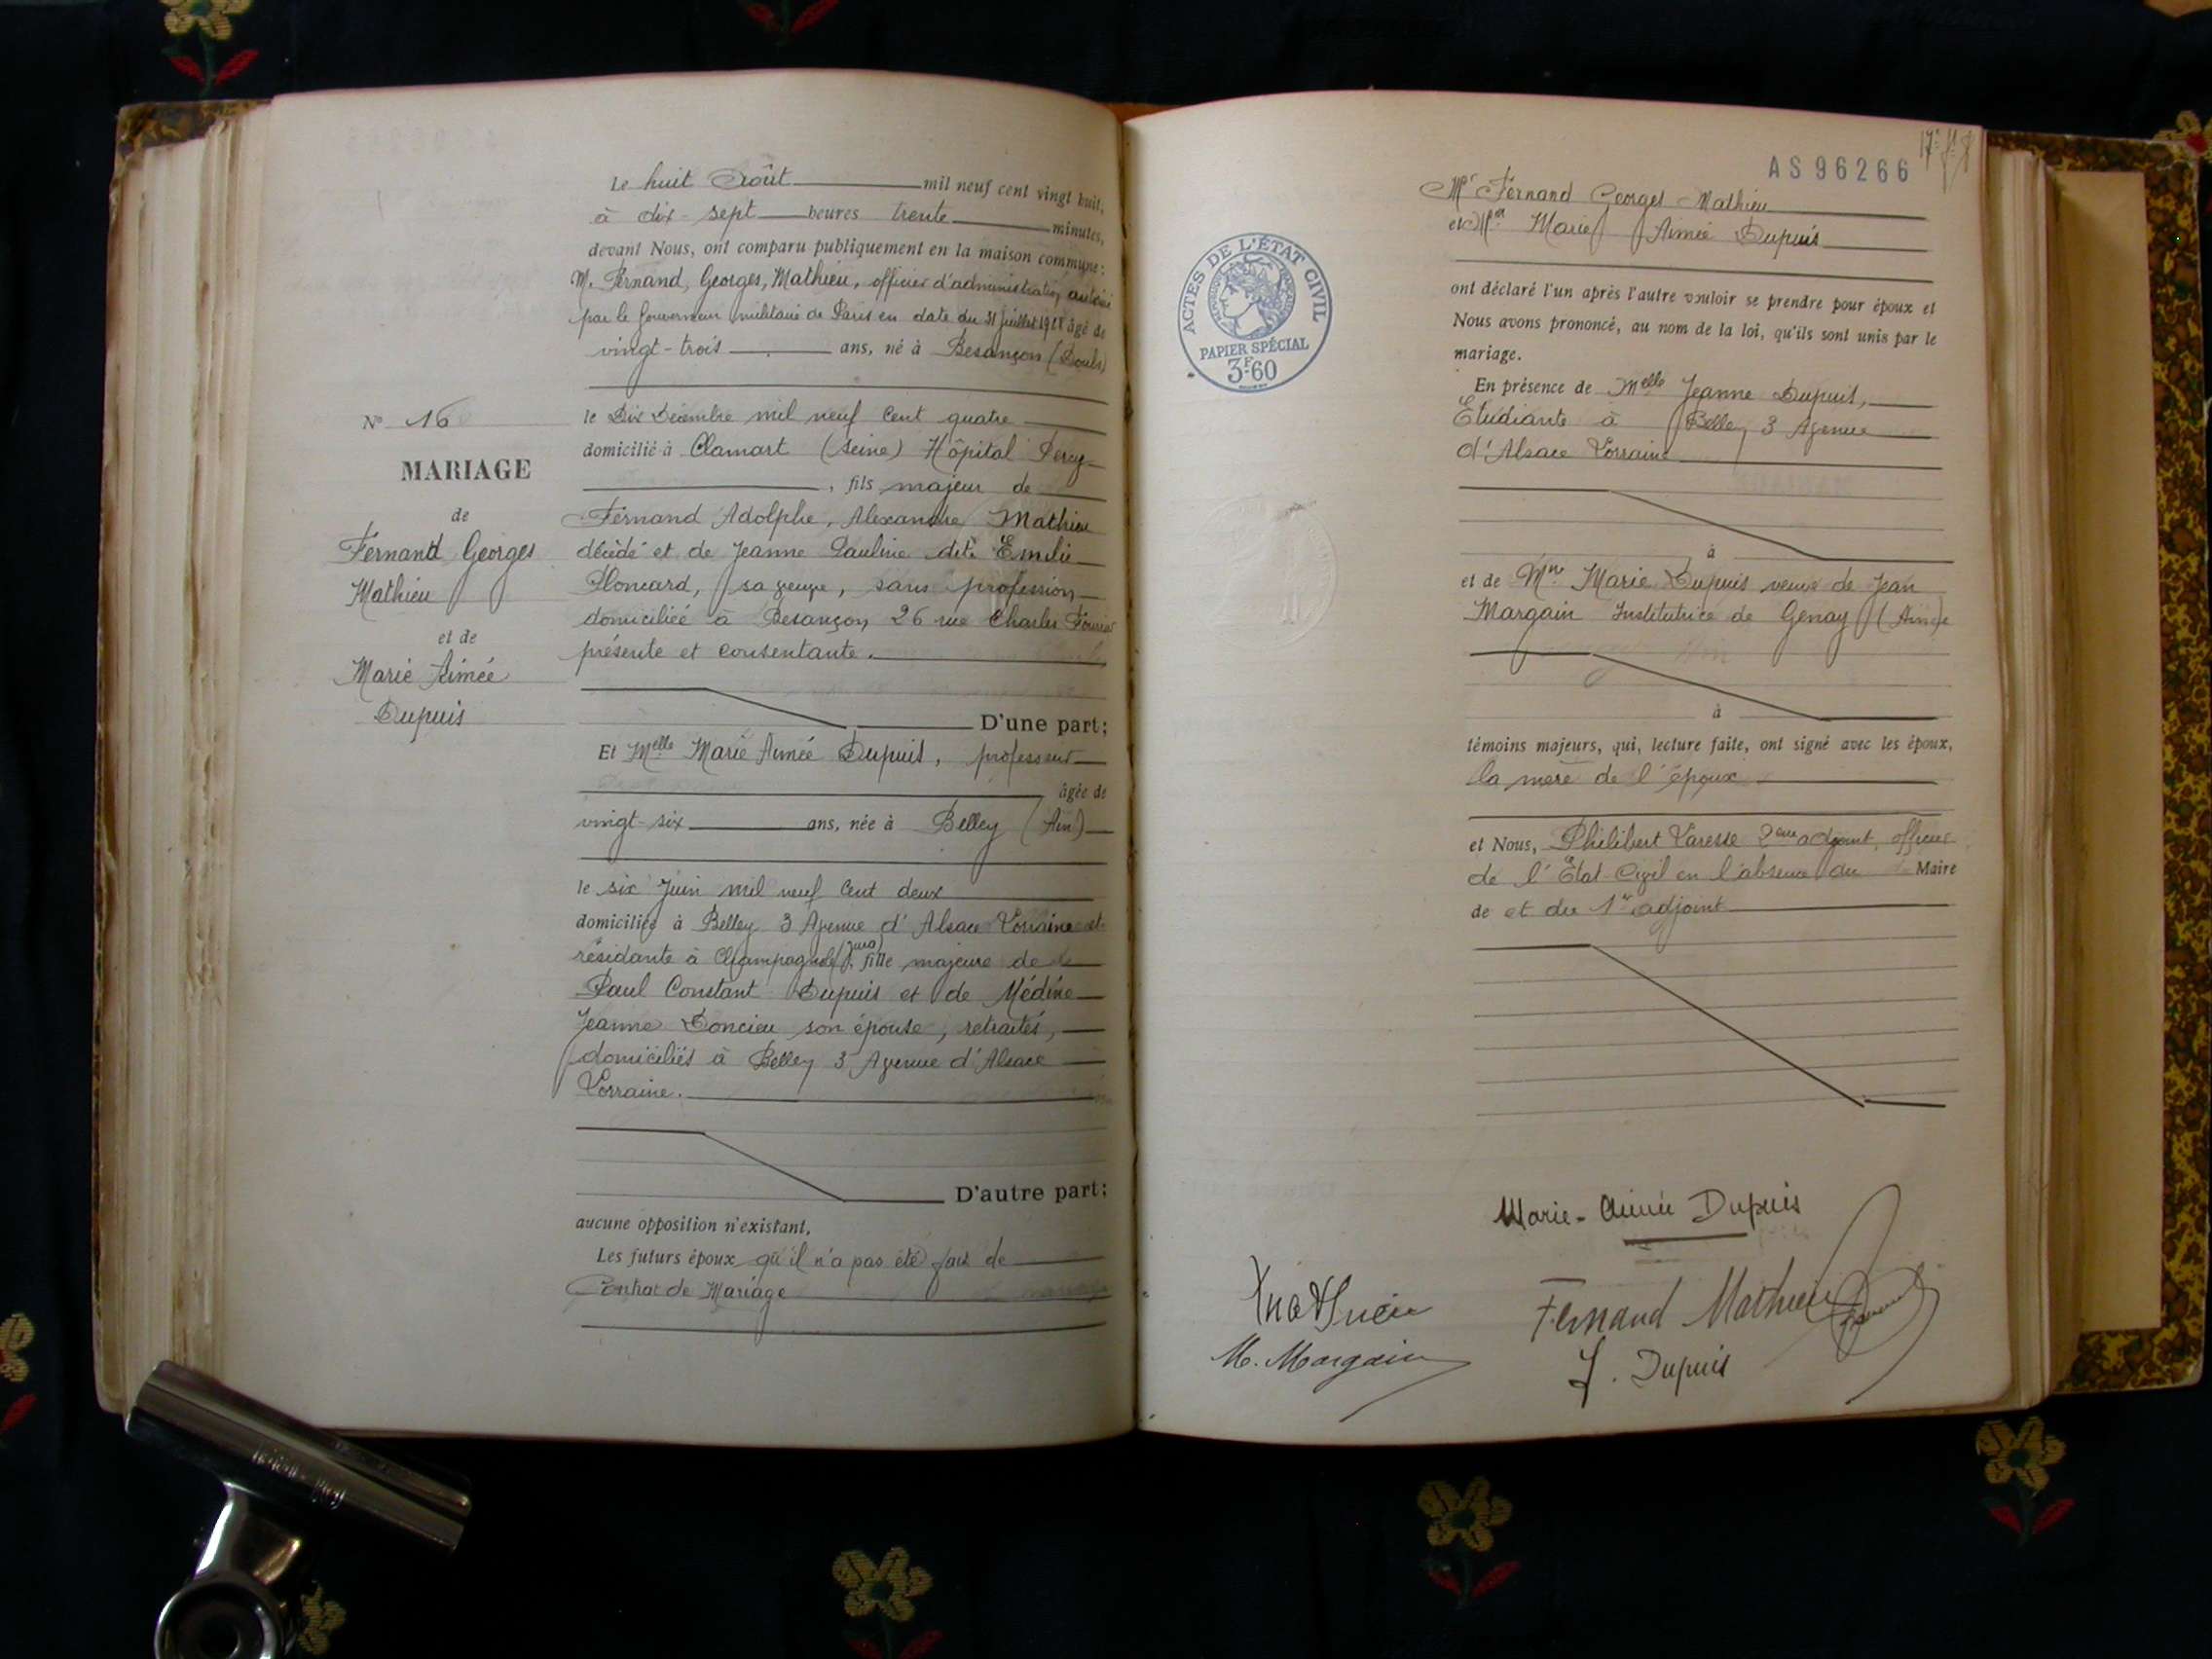 Le huit Août mil neuf cent vingt huit,
à dix-sept heures trente minutes,
devant Nous, ont comparu publiquement en la maison commune :
M. Fernand, Georges, Mathieu, officier d'administration autorisé
par le Gouverneur militaire de Paris en date du 31 juillet 1928 âgé de
vingt-trois ans, né à Besançon (Doubs)
No 16
le Dix Décembre mil neuf cent quatre
domicilié à Clamart (Seine) Hôpital Percy
MARIAGE
, fils majeur de
de
Fernand Adolphe, Alexandre Mathieu
Fernand Georges
décédé et de Jeanne Pauline dite Emilie
Mathieu
sa veuve, sans profession
domiciliée à Besançon 26 rue Charles Fourier
et de
présente et consentante.
Marie Aimée
Dupuis
D'une part;
Et Melle Marie Aimée Dupuis, professeur
âgée de
vingt-six ans, née à Belley (Ain)
le six Juin mil neuf cent deux
domiciliée à Belley 3 Avenue d'Alsace Lorraine et
résidante à Champagnole (Jura), fille majeure de
Paul Constant Dupuis et de Médine
Jeanne Doncieu son épouse, retraités,
domiciliés à Belley 3 Avenue d'Alsace
Lorraine.
D'autre part;
aucune opposition n'existant,
Les futurs époux qu'il n'a pas été fait de
Contrat de Mariage
AS96266
ACTES DE L'ÉTAT CIVIL
PAPIER SPÉCIAL
3F60
Mr Fernand Georges Mathieu
et Marie Aimée Dupuis
ont déclaré l'un après l'autre vouloir se prendre pour époux et
Nous avons prononcé, au nom de la loi, qu'ils sont unis par le
mariage.
En présence de Melle Jeanne Dupuis,
Etudiante à Belley 3 Avenue
d'Alsace Lorraine
à
et de Mme Marie Dupuis veuve de Jean
Margain Institutrice de Genay (Ain)
à
témoins majeurs, qui, lecture faite, ont signé avec les époux,
la mère de l'époux
et Nous, Philibert Varesse 2eme adjoint, officier
de l'État Civil en l'absence du Maire
de et du 1er adjoint
Marie-Aimée Dupuis
Mathieu
Fernand Mathieu
M. Margain
J. Dupuis